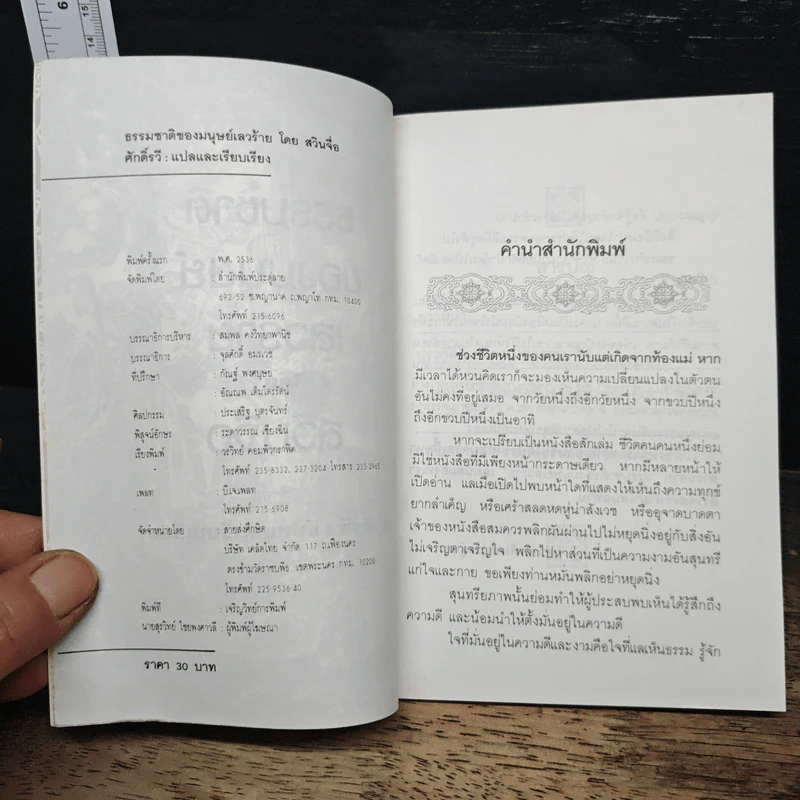 ธรรมชาติของมนุษย์เลวร้าย โดย สวินจื่อ
ศักดิ์รวี : แปลและเรียบเรียง
พิมพ์ครั้งแรก : พ.ศ. 2536
จัดพิมพ์โดย : สำนักพิมพ์ประตูลาย
692/52 ซ.พญานาค ถ.พญาไท กทม. 10400
โทรศัพท์ 215-6096
บรรณาธิการบริหาร : สมพล คงวิทยาพานิช
บรรณาธิการ : จุลศักดิ์ อมรเวช
ที่ปรึกษา : กัณฐ์ พงศบุษย
อัณณพ เติมไตรรัตน์
ศิลปกรรม : ประเสริฐ บุตรจันทร์
พิสูจน์อักษร : ระดาวรรณ เชียงฉิน
เรียงพิมพ์ : วรวิทย์ คอมพิวกราฟิค
โทรศัพท์ 235-8332, 237-3204 โทรสาร 233-2965
เพลท : บีเจเพลท
โทรศัพท์ 215-6908
จัดจำหน่ายโดย : สายส่งศึกษิต
บริษัท เคล็ดไทย จำกัด 117 ถ.เฟื่องนคร
ตรงข้ามวัดราชบพิธ เขตพระนคร กทม. 10200
โทรศัพท์ 225-9536-40
พิมพ์ที่ : เจริญวิทย์การพิมพ์
นายสุรวิทย์ ไชยพงศาวลี : ผู้พิมพ์ผู้โฆษณา
ราคา 30 บาท
คำนำสำนักพิมพ์
ช่วงชีวิตหนึ่งของคนเรานับแต่เกิดจากท้องแม่ หาก
มีเวลาได้หวนคิดเราก็จะมองเห็นความเปลี่ยนแปลงในตัวตน
อันไม่คงที่อยู่เสมอ จากวัยหนึ่งถึงอีกวัยหนึ่ง จากขวบปีหนึ่ง
ถึงอีกขวบปีหนึ่งเป็นอาทิ
หากจะเปรียบเป็นหนังสือสักเล่ม ชีวิตคนคนหนึ่งย่อม
มิใช่หนังสือที่มีเพียงหน้ากระดาษเดียว หากมีหลายหน้าให้
เปิดอ่าน และเมื่อเปิดไปพบหน้าใดที่แสดงให้เห็นถึงความทุกข์
ยากลำเค็ญ หรือเศร้าสลดหดหู่น่าสังเวช หรืออุจาดบาดตา
เจ้าของหนังสือสมควรพลิกผันผ่านไปไม่หยุดนิ่งอยู่กับสิ่งอัน
ไม่เจริญตาเจริญใจ พลิกไปหาส่วนที่เป็นความงามอันสุนทรี
แก่ใจและกาย ขอเพียงท่านหมั่นพลิกอย่าหยุดนิ่ง
สุนทรียภาพนั้นย่อมทำให้ผู้ประสบพบเห็นได้รู้สึกถึง
ความดี และน้อมนำให้ตั้งมั่นอยู่ในความดี
ใจที่มั่นอยู่ในความดีและงามคือใจที่แลเห็นธรรม รู้จัก